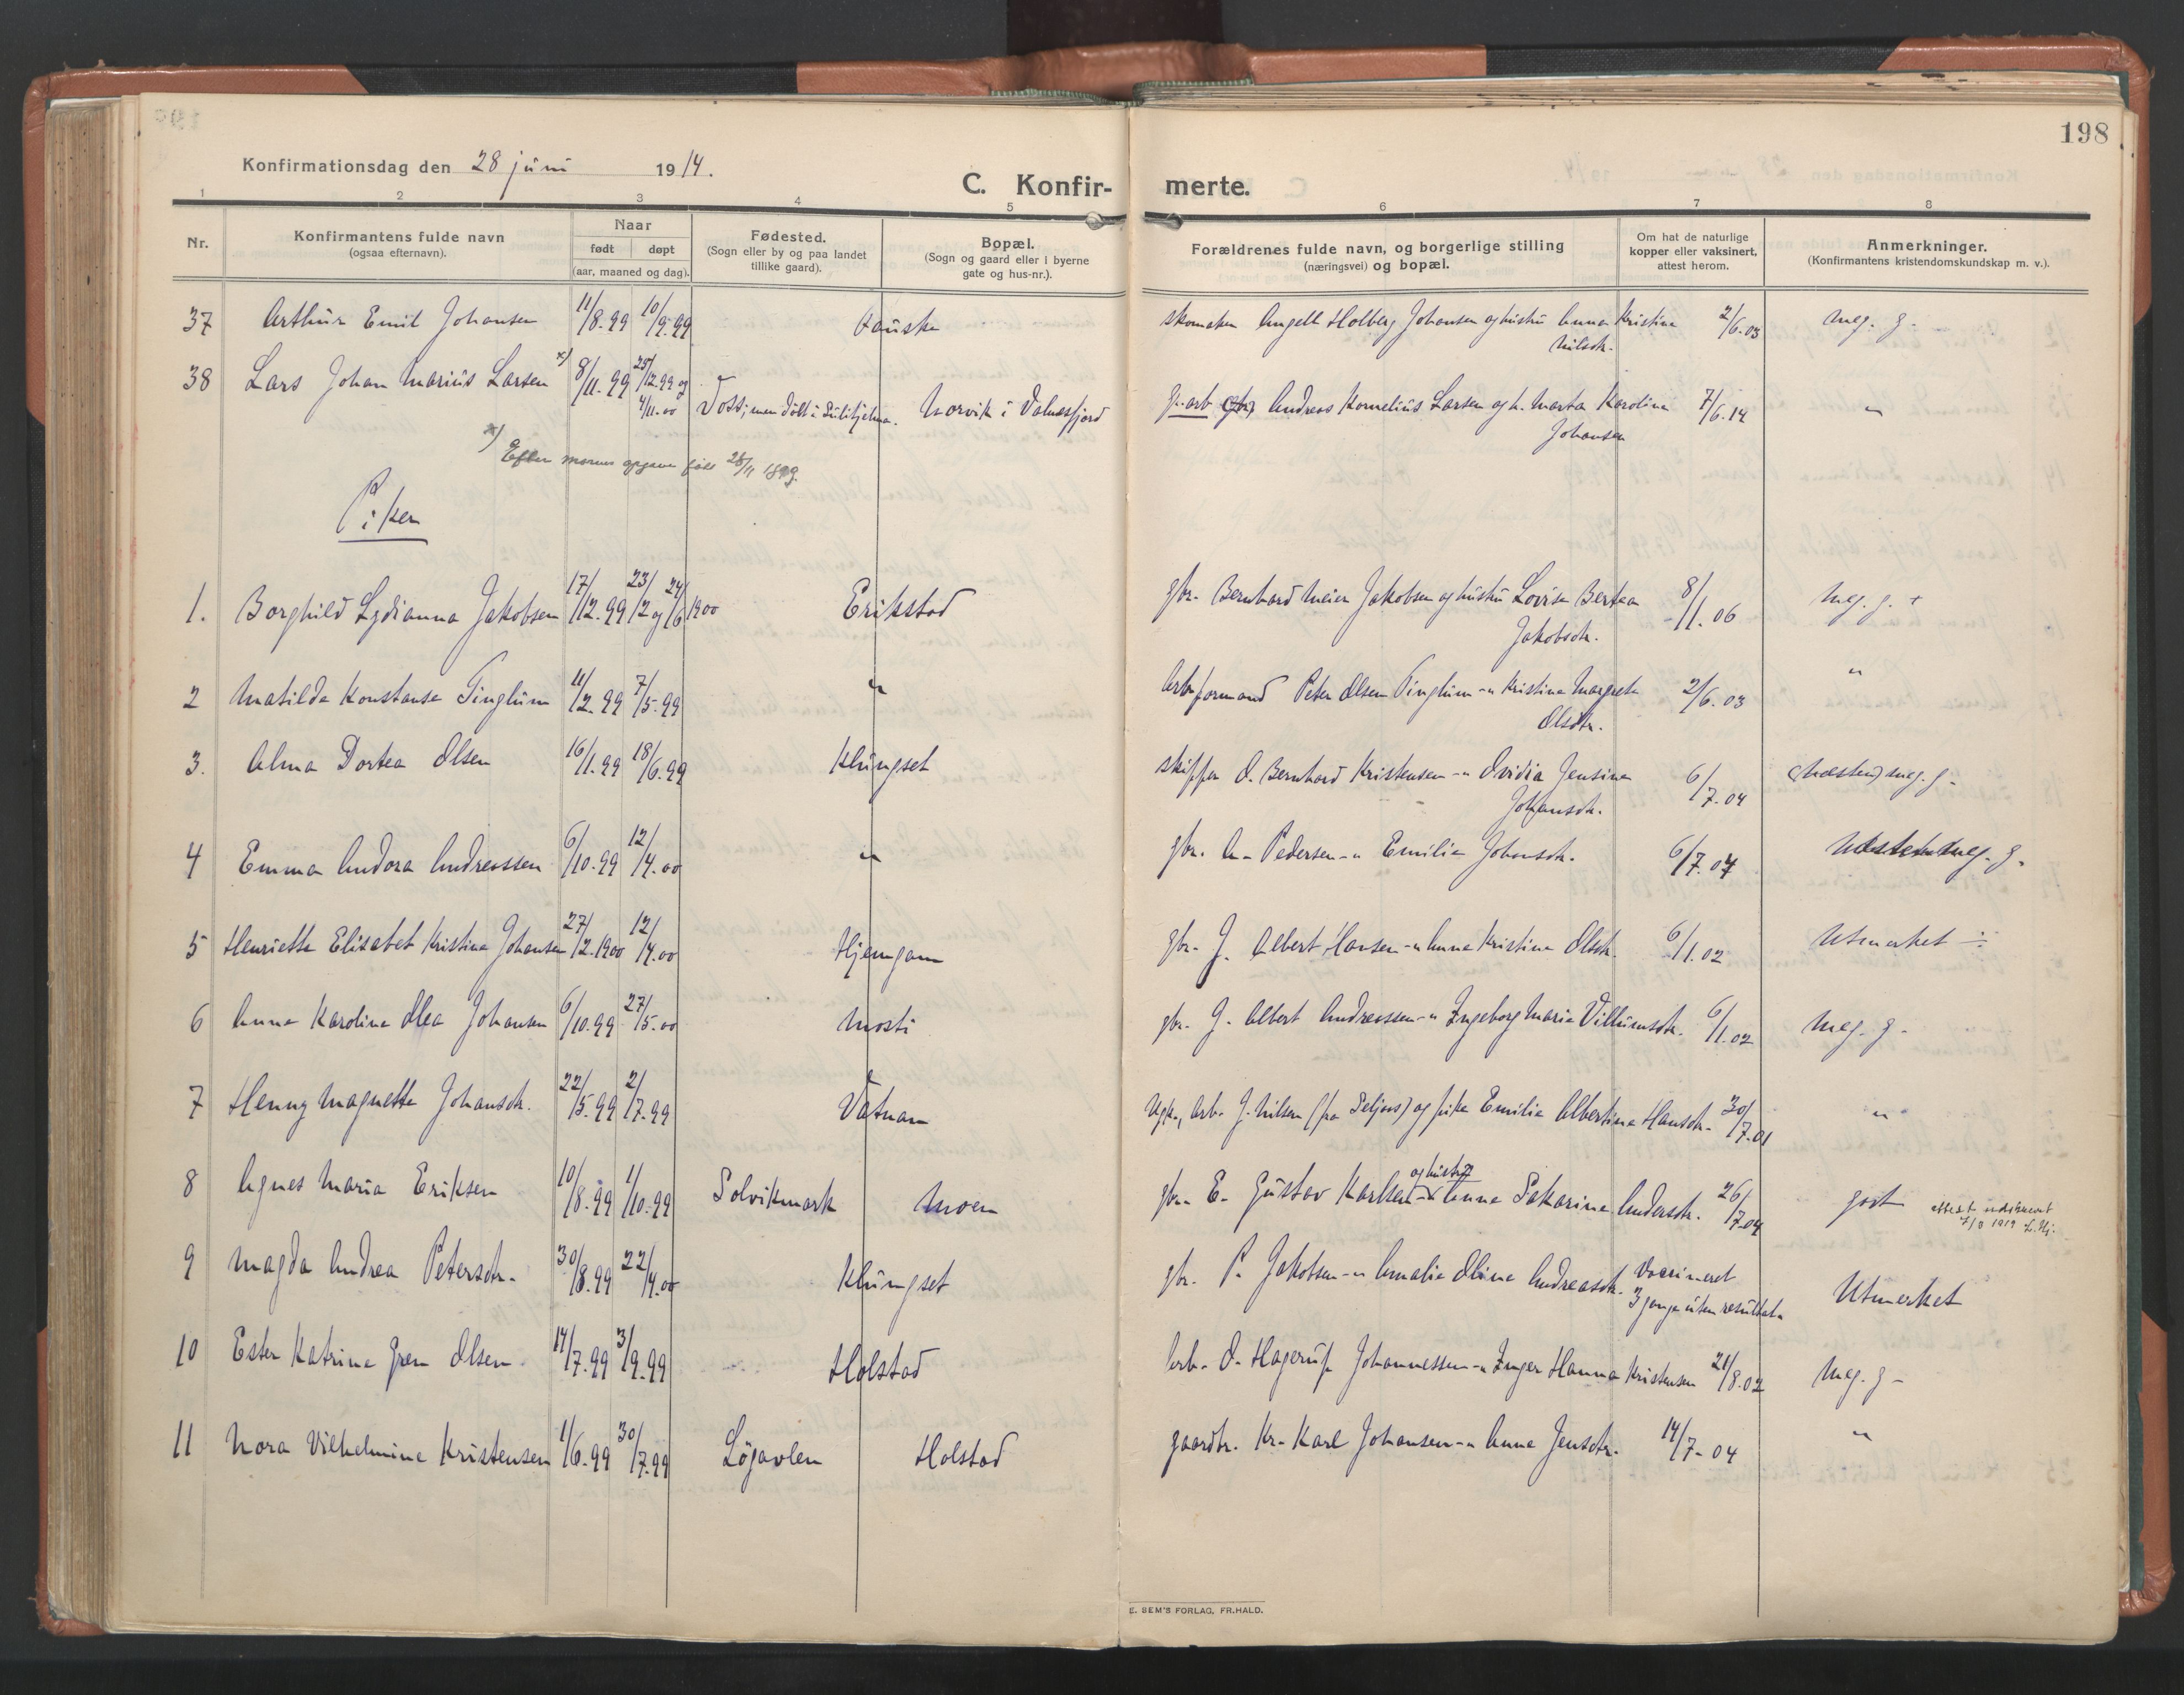 198
Konfirmationsdag den 28 juni 1914.
C. Konfir- merte.
1 2 3 4 5 6 7 8
Nr.
Konfirmantens fulde navn
(ogsaa efternavn).
Naar
født døpt
(aar, maaned og dag).
Fødested.
(Sogn eller by og paa landet
tillike gaard).
Bopæl.
(Sogn og gaard eller i byerne
gate og hus-nr.).
Forældrenes fulde navn, og borgerlige stilling
(næringsvei) og bopæl.
Om hat de naturlige
kopper eller vaksinert,
attest herom.
Anmerkninger.
(Konfirmantens kristendomskundskap m. v.).
37 Arthur Emil Johansen 11/8.99 10/9.99 Fauske skomaker Angell Holberg Johansen og hustru Anna Kristine 2/6.03 Meg. g.
Nilsdtr.
38 Lars Johan Marius Larsen x) 8/11.99 25/12.99 og
4/11.00 Voss; men døbt i Sulitjelma. Norvik i Valnesfjord gr.arb. Andreas Kornelius Larsen og h. Marta Karoline 7/6.14 "
Johansen
x) Efter morens opgave født 28/11 1899.
Piker
1. Borghild Lydianna Jakobsen 17/12.99 23/2 og 24/6 1900 Erikstad gbr. Bernhard Meier Jakobsen og hustru Lovise Bertea 8/11.06 Meg. g. +
Jakobsdtr.
2 Matilde Konstanse Tinglum 11/2.99 7/5.99 " Arb.formand Peter Olsen Tinglum -"- Kristine Margrete 2/6.03 "
Olsdtr.
3. Alma Dortea Olsen 16/1.99 18/6.99 Klungset skipper O. Bernhard Kristensen -"- Ovidia Jensine 6/7.04 (Næsten) meg. g.
Johansdtr.
4 Emma Andora Andreassen 6/10.99 12/4.00 " gbr. A. Pedersen -"- Emilie Johansdtr. 6/7.04 Næsten meg. g.
5 Henriette Elisabet Kristine Johansen 27/2.1900 12/4.00 Hjemgam gbr. J. Albert Hansen -"- Anna Kristine Olsdtr. 6/1.02 Utmerket ÷
6 Anna Karoline Olea Johansen 6/10.99 27/5.00 Mosti gbr. J. Albert Andreassen -"- Ingeborg Marie Villumsdtr. 6/1.02 Meg. g.
7 Henny Magnette Johansdtr. 22/5.99 2/7.99 Vatnan Ugk., arb. J. Nilsen (fra Seljaas) og pike Emilie Albertine Hansdtr. 30/7.01 "
8 Agnes Maria Eriksen 10/8.99 1/10.99 Solvikmark Moen gbr. E. Gustav Karlsen og hustru Anna Sakarine Andersdtr. 26/7.04 godt attest utskrevet
7/8 1919
9 Magda Andrea Petersdtr. 30/8.99 22/4.00 Klungset gbr. P. Jakobsen -"- Amalie Oline Andreasdtr. Vaccineret
3 gange uten resultat. Utmerket
10 Ester Katrine Gren Olsen 14/7.99 3/9.99 Holstad Arb. O. Hagerup Johannessen -"- Inger Hanna Kristensen 21/8.02 Meg. g.
11 Nora Vilhelmine Kristensen 1/6.99 30/7.99 Løgavlen Holstad gaardbr. Kr. Karl Johansen -"- Anna Jensdtr. 14/7.04 "
E. SEM'S FORLAG, FR.HALD.